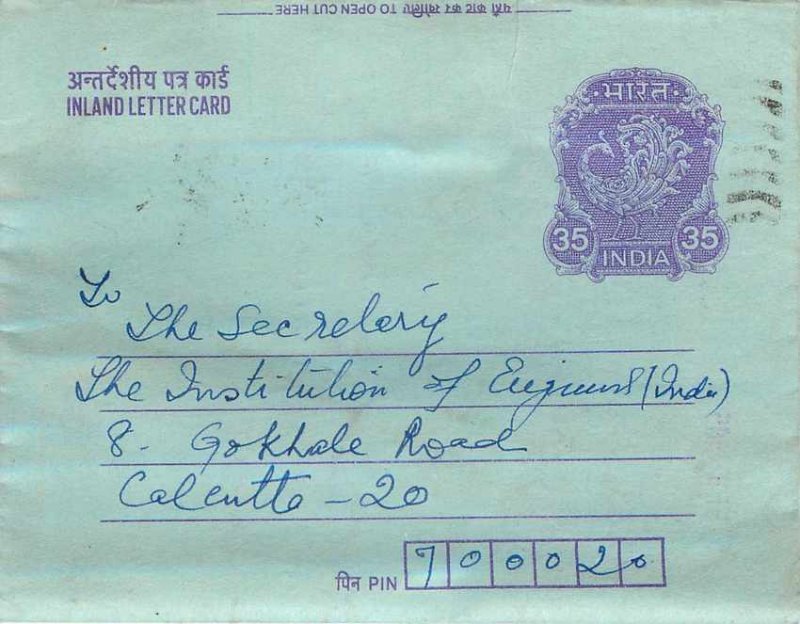 यहाँ काट कर खोलिए TO OPEN CUT HERE
अन्तर्देशीय पत्र कार्ड
INLAND LETTER CARD
भारत
35 35
INDIA
To
The Secretary
The Institution of Engineers (India)
8. Gokhale Road
Calcutta - 20
पिन PIN 700020